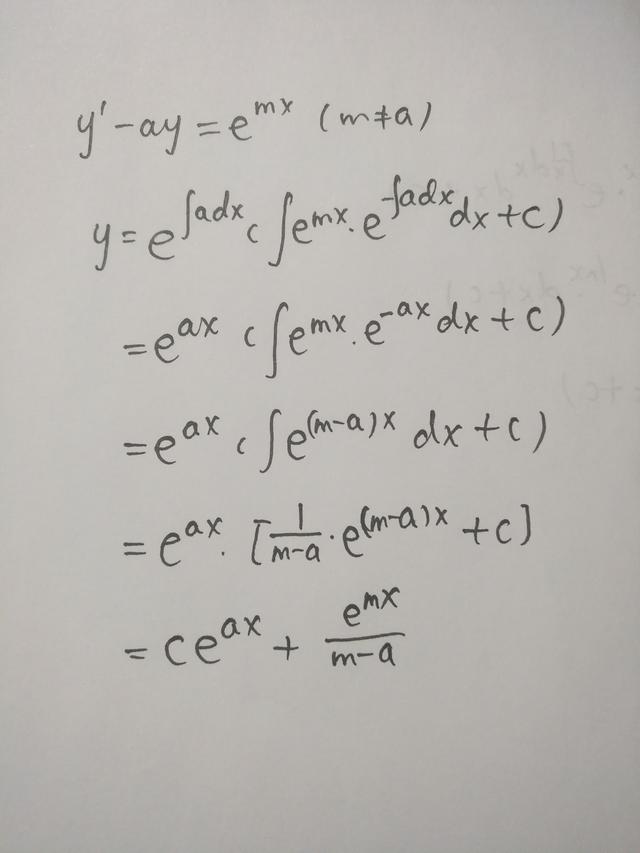 y′-ay=e^{mx} (m≠a)
y=e^{∫adx}(∫e^{mx}·e^{-∫adx}dx+c)
=e^{ax}(∫e^{mx}·e^{-ax}dx+c)
=e^{ax}(∫e^{(m-a)x}dx+c)
=e^{ax}·[\frac{1}{m-a}·e^{(m-a)x}+c]
=ce^{ax}+\frac{e^{mx}}{m-a}